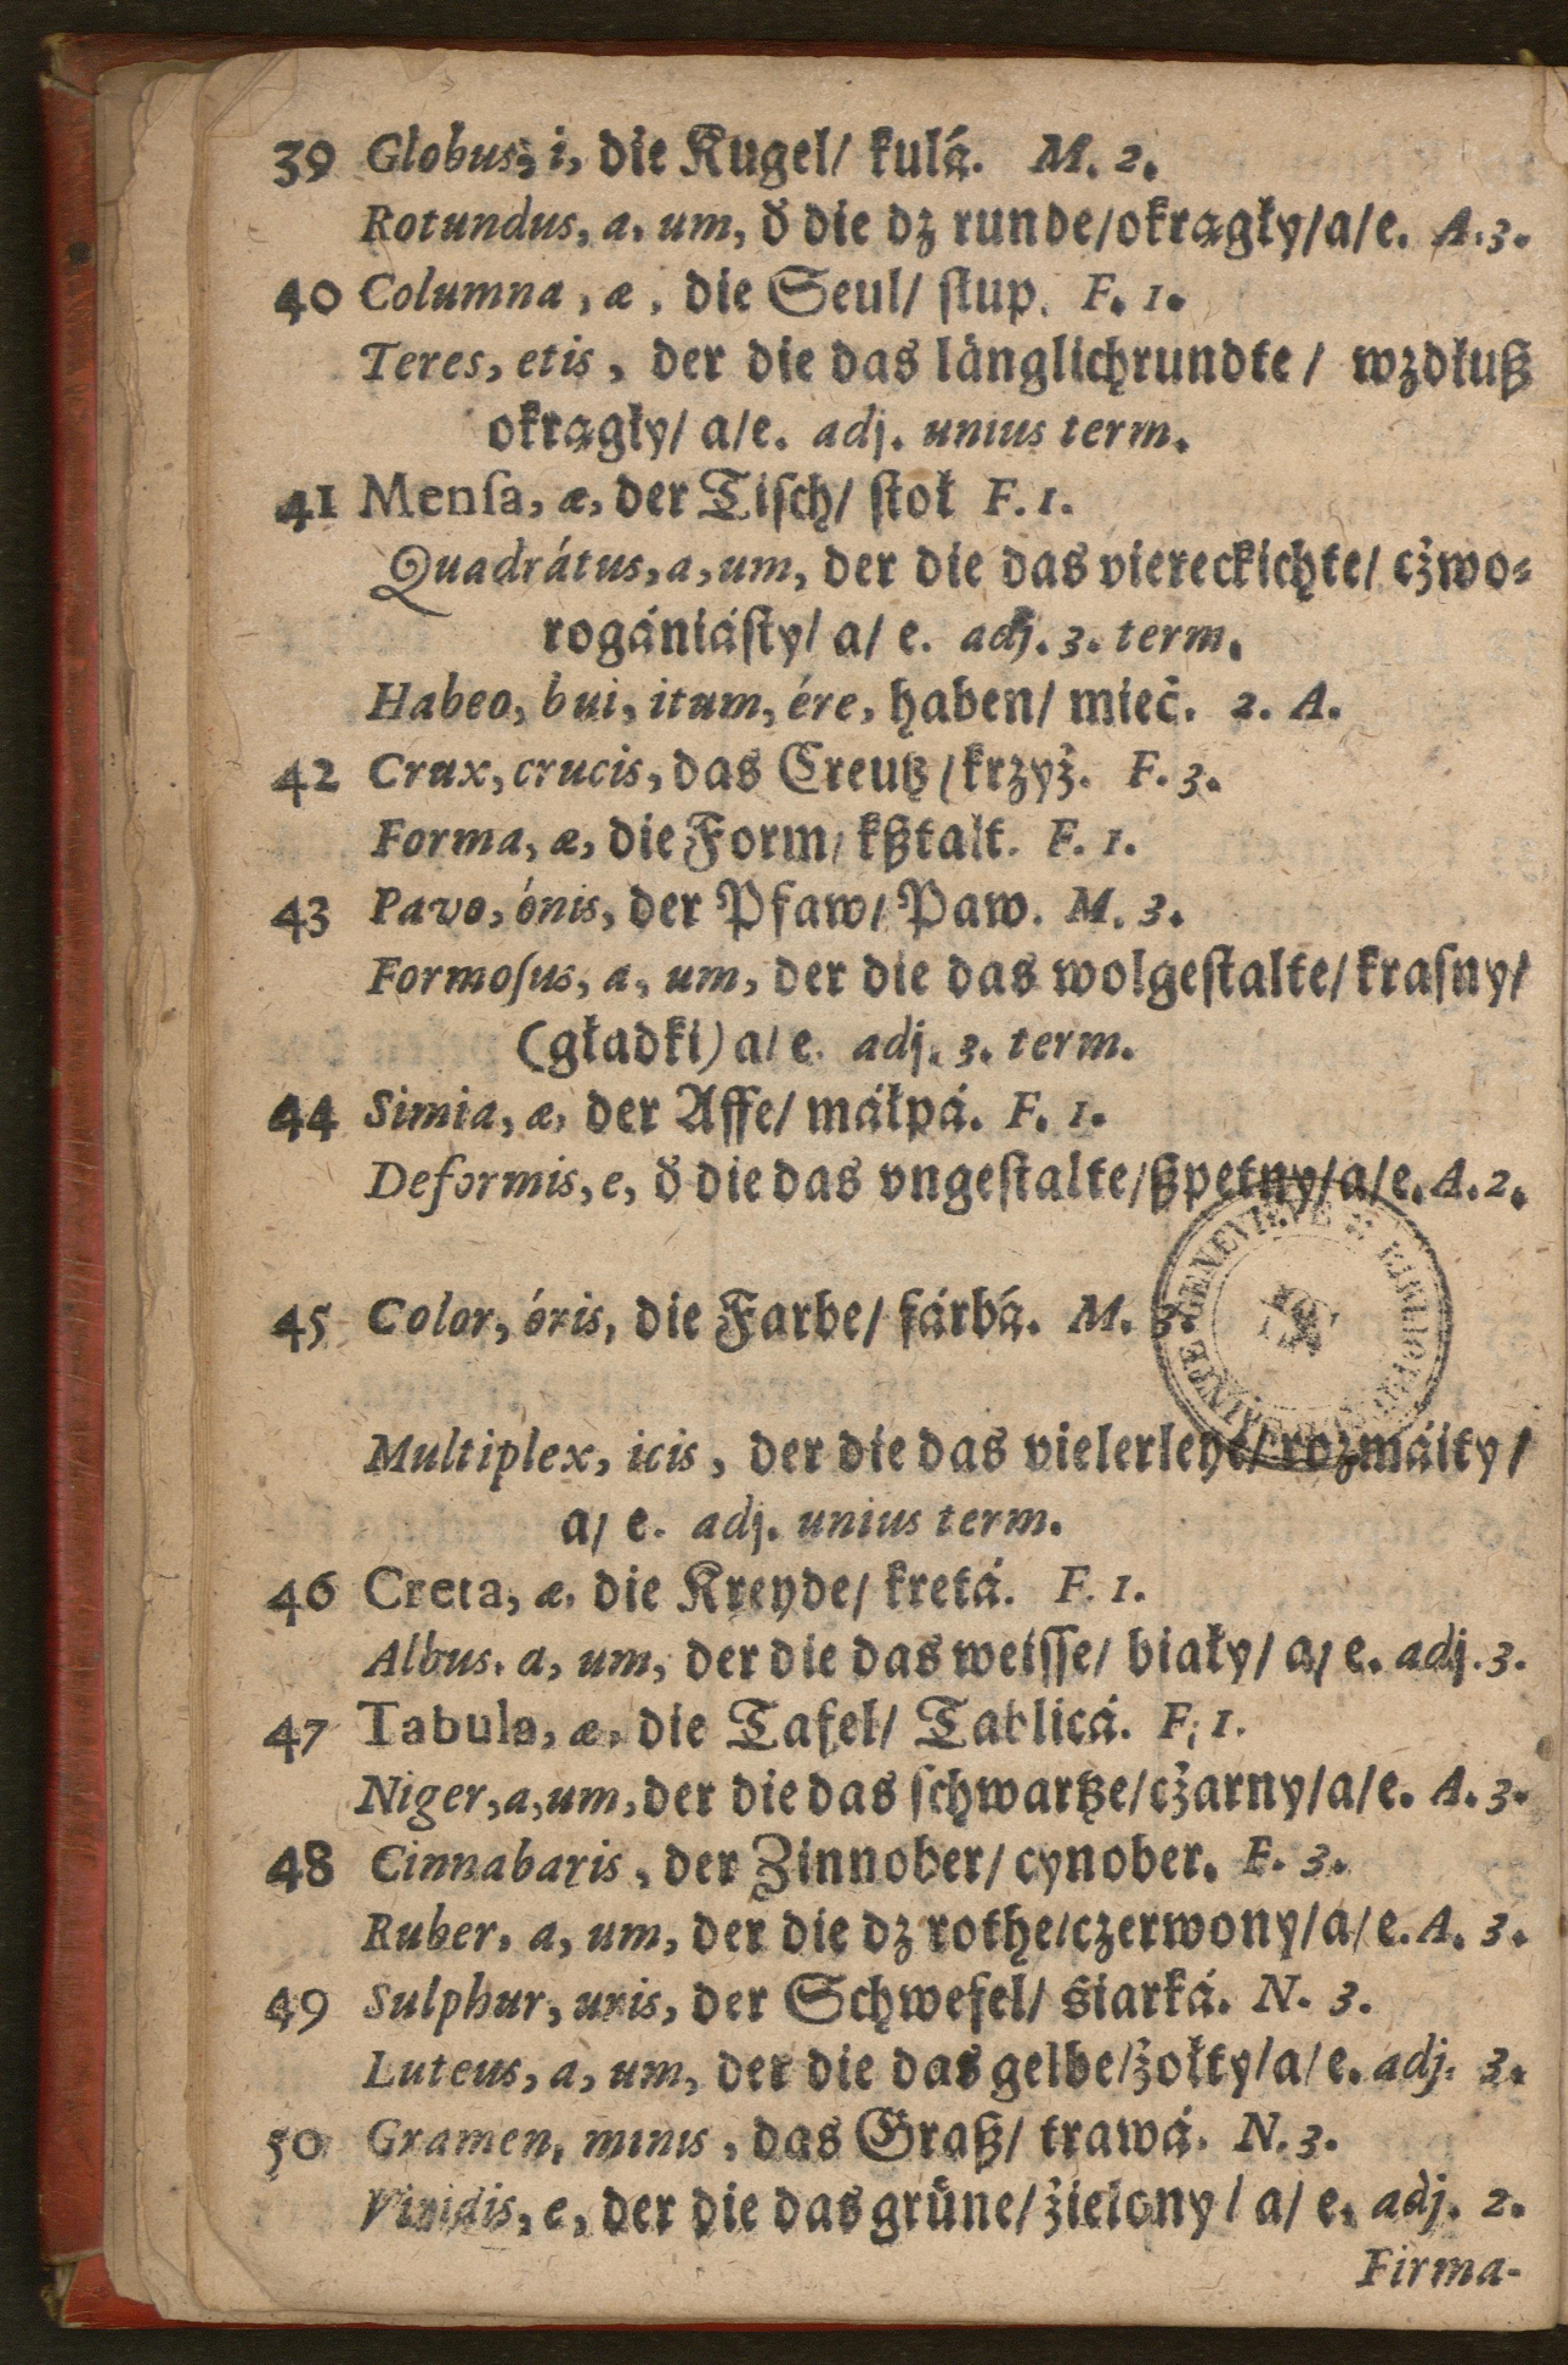 39 Globus, i, die Kugel/ kulá. M. 2.
Rotundus, a, um, d̕ die dz runde/okragły/a/e. A. 3.
40 Columna, æ, die Seul/ ſlup. F. 1.
Teres, etis, der die das länglichrundte/ wzdłuß
okragły/ a/e. adj. unius term.
41 Menſa, æ, der Tiſch/ ſtoł F. 1.
Quadrátus, a, um, der die das viereckichte/ cżwo⸗
rogániáſty/ a/ e. adj. 3. term.
Habeo, bui, itum, ére, haben/ mieć. 2. A.
42 Crux, crucis, das Creutz/krzyż. F. 3.
Forma, æ, die Form/ kßtalt. F. 1.
43 Pavo, ónis, der Pfaw/ Paw. M. 3.
Formoſus, a, um, der die das wolgeſtalte/ kraſny/
(gładki) a/ e. adj. 3. term.
44 Simia, æ, der Affe/ máłpá. F. 1.
Deformis, e, d̕ die das vngeſtalte/ßpetny/a/e. A. 2.
45 Color, óris, die Farbe/ fárbá. M. 3.
Multiplex, icis, der die das vielerleye/ rozmáity/
a/ e. adj. unius term.
46 Creta, æ, die Kreyde/ kretá. F. 1.
Albus, a, um, der die das weiſſe/ biały/ a/ e. adj. 3.
47 Tabula, æ, die Tafel/ Tablicá. F. 1.
Niger, a, um, der die das ſchwartze/cżarny/a/e. A. 3.
48 Cinnabaris, der Zinnober/ cynober. F. 3.
Ruber, a, um, der die dz rothe/czerwony/a/e. A. 3.
49 Sulphur, uris, der Schwefel/ śiarká. N. 3.
Luteus, a, um, der die das gelbe/żołty/a/e. adj. 3.
50 Gramen, minis, das Graß/ trawá. N. 3.
Viridis, e, der die das grüne/ żielony/ a/ e. adj. 2.
Firma-